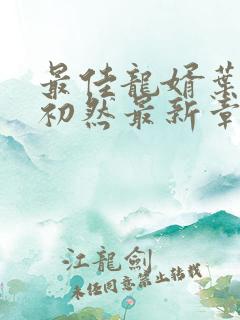 最佳龍婿葉
初然最新章
江龍劍
未经同意禁止转载